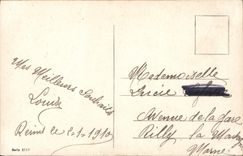 Mes Meilleurs Souhaits
Louise
Reims le 2-1-1910
Mademoiselle
Lucie
Avenue de la gare
Rilly la Montagne
Marne